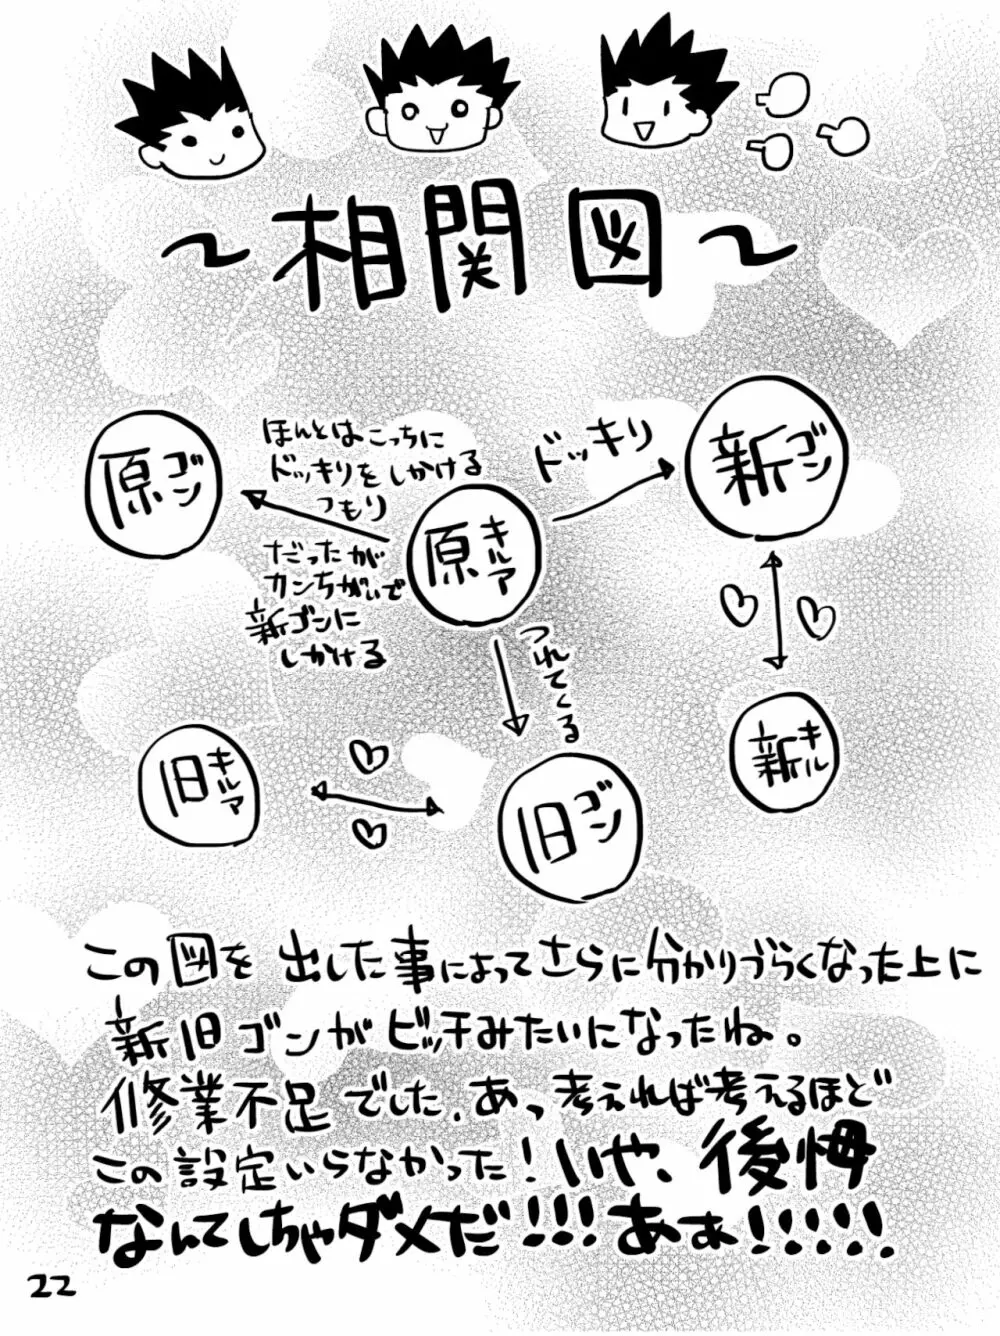 ～相関図～
原ゴン
ほんとはこっちに
ドッキリをしかける
つもり
だったが
カンちがいで
新ゴンに
しかける
原キルア
ドッキリ
新ゴン
つれてくる
旧キルア
旧ゴン
新キル
この図を出した事によってさらに分かりづらくなった上に
新旧ゴンがビッチみたいになったね。
修業不足でした。あっ考えれば考えるほど
この設定いらなかった！いや、後悔
なんてしちゃダメだ!!!あぁ!!!!!
22